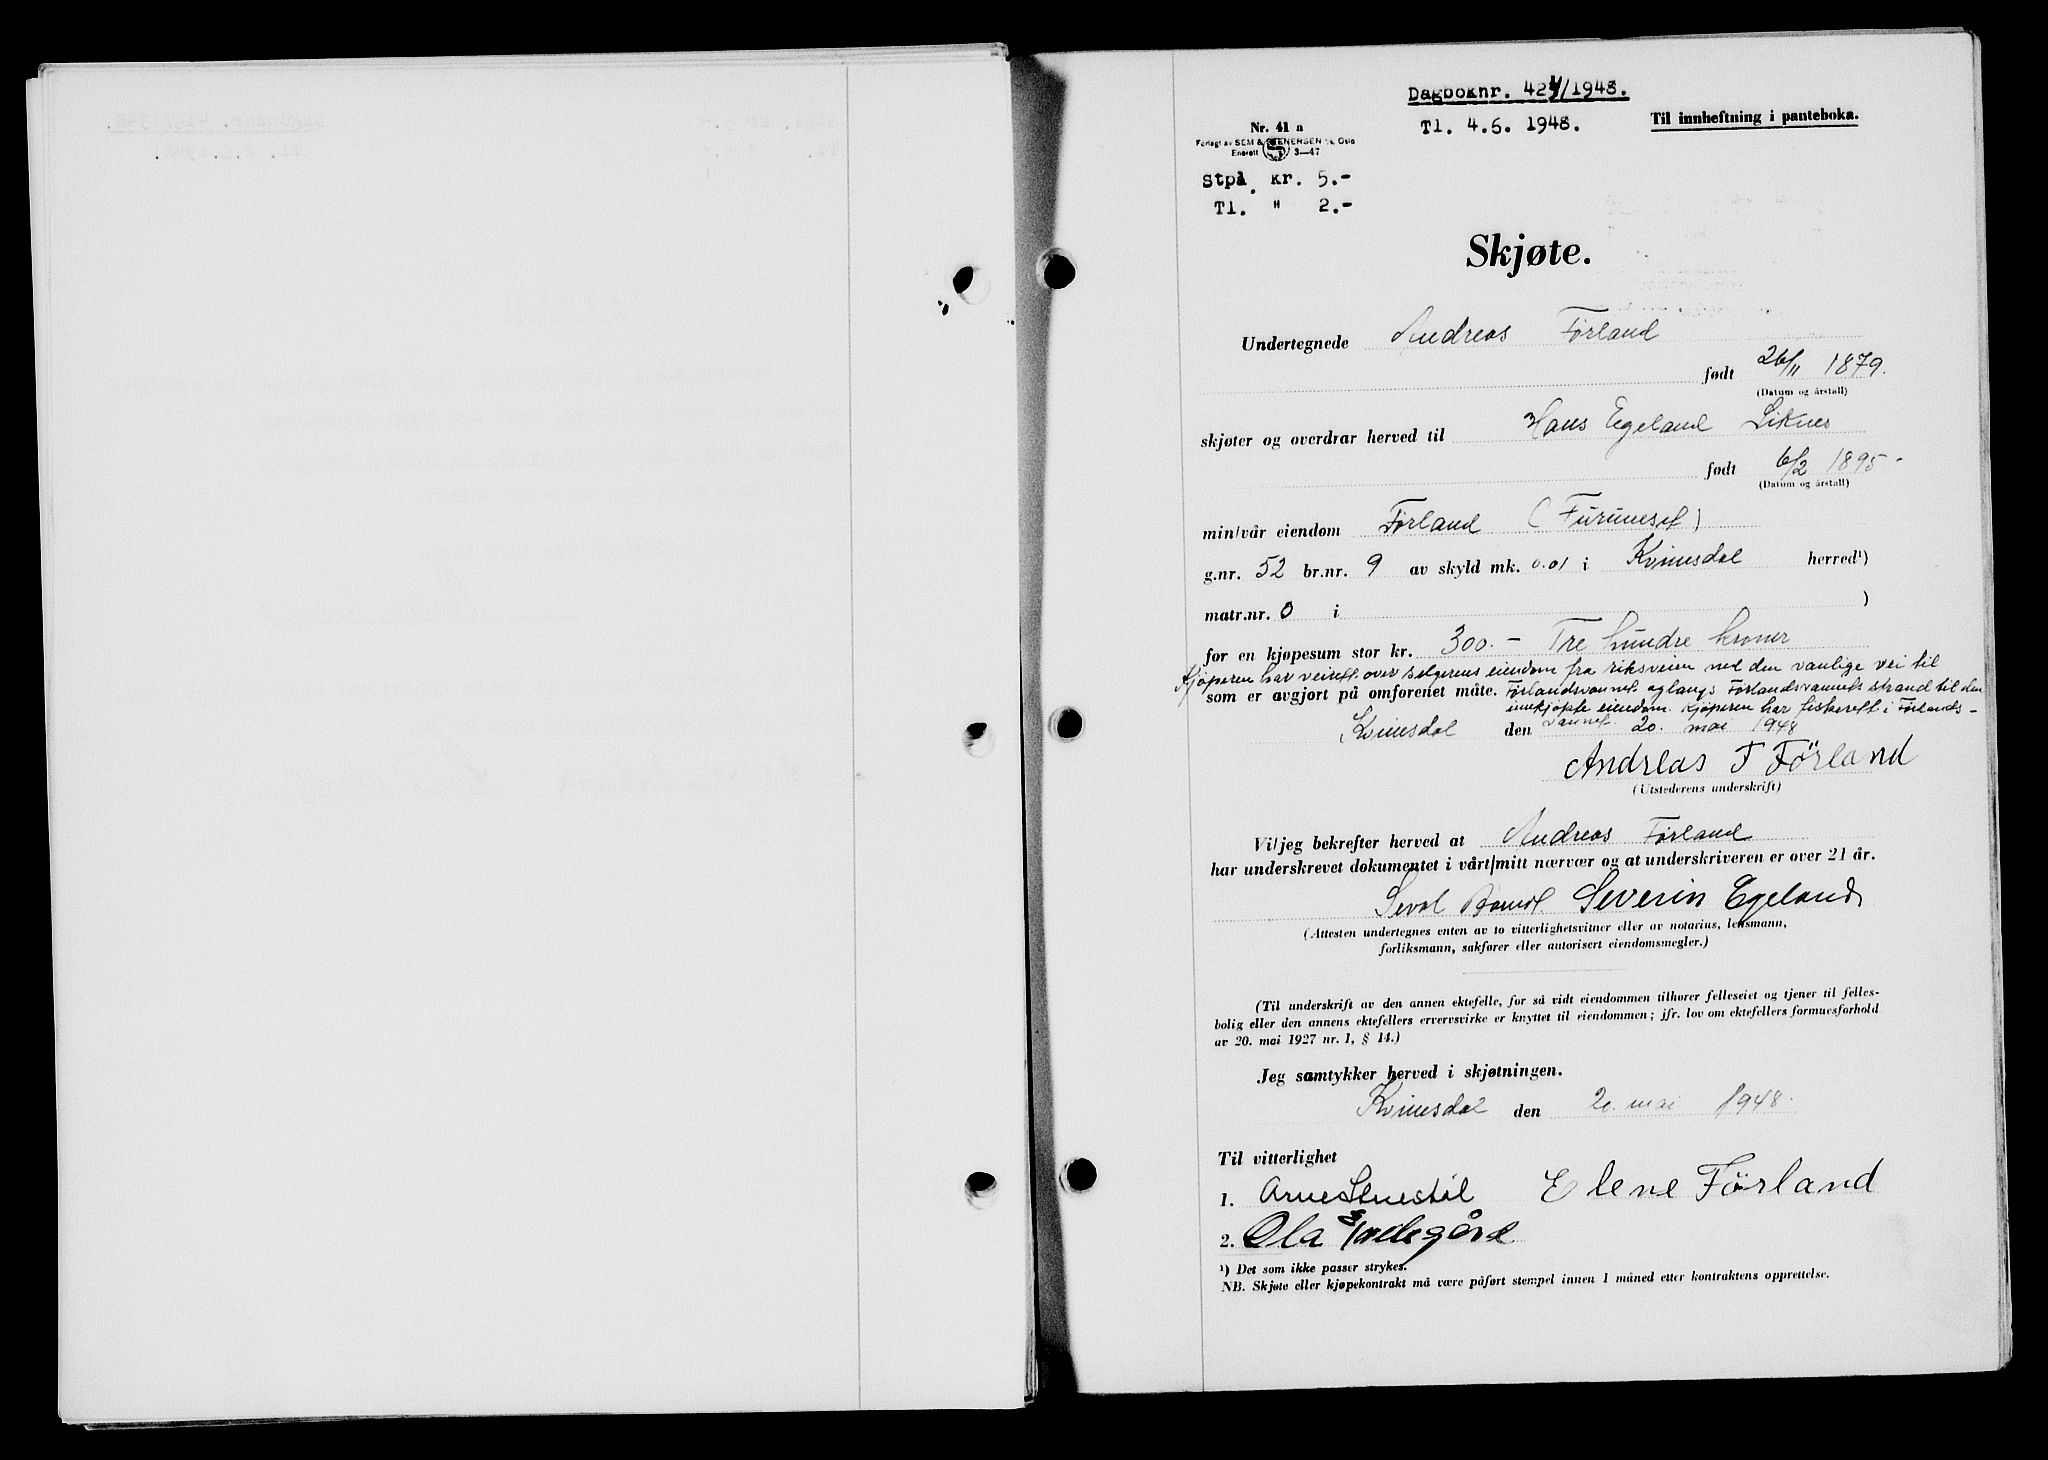 Dagboknr. 424/1948.
Tl. 4.6. 1948.
Til innheftning i panteboka.
Nr. 41 a
Forlagt av SEM & STENERSEN A/S, Oslo
Enerett 3—47
Stpl. kr. 5.-
Tl. " 2.-
Skjøte.
Undertegnede Andreas Førland
født 26/11 1879.
(Datum og årstall)
skjøter og overdrar herved til Hans Egeland Liknes
født 6/2 1895-
(Datum og årstall)
min/vår eiendom Førland (Furuneset)
g.nr. 52 br.nr. 9 av skyld mk. 0.01 i Kvinesdal herred¹)
matr.nr. 0 i )
for en kjøpesum stor kr. 300.- Tre hundre kroner
Kjøperen har veirett over selgerens eiendom fra riksveien ned den vanlige vei til
som er avgjort på omforenet måte. Førlandsvannet og langs Førlandsvannets strand til den
innkjøpte eiendom. Kjøperen har fiskerett i Førlands-
vannet.
Kvinesdal den 20. mai 1948
Andreas T Førland
(Utstederens underskrift)
Vi/jeg bekrefter herved at Andreas Førland
har underskrevet dokumentet i vårt/mitt nærvær og at underskriveren er over 21 år.
Severin Egeland
(Attesten undertegnes enten av to vitterlighetsvitner eller av notarius, lensmann,
forliksmann, sakfører eller autorisert eiendomsmegler.)
(Til underskrift av den annen ektefelle, for så vidt eiendommen tilhører felleseiet og tjener til felles-
bolig eller den annens ektefellers ervervsvirke er knyttet til eiendommen; jfr. lov om ektefellers formuesforhold
av 20. mai 1927 nr. 1, § 14.)
Jeg samtykker herved i skjøtningen.
Kvinesdal den 20. mai 1948.
Til vitterlighet
1. Arne Stuestøl Elene Førland
2. Ola
¹) Det som ikke passer strykes.
NB. Skjøte eller kjøpekontrakt må være påført stempel innen 1 måned etter kontraktens opprettelse.